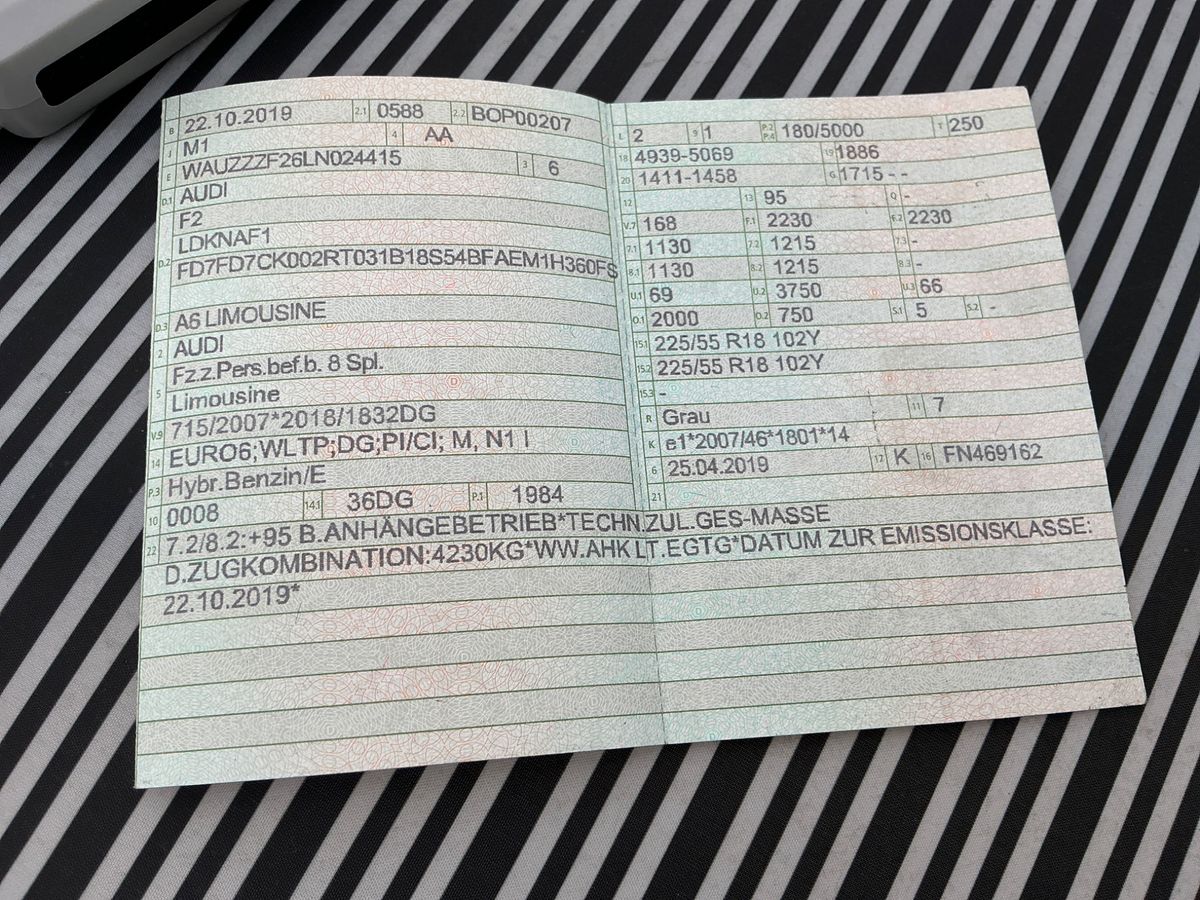 B 22.10.2019 2.1 0588 2.2 BOP00207
J M1 4 AA
E WAUZZZF26LN024415 3 6
D.1 AUDI
F2
LDKNAF1
D.2 FD7FD7CK002RT031B18S54BFAEM1H360FS
D.3 A6 LIMOUSINE
2 AUDI
Fz.z.Pers.bef.b. 8 Spl.
5 Limousine
V.9 715/2007*2018/1832DG
14 EURO6;WLTP;DG;PI/CI; M, N1 I
P.3 Hybr.Benzin/E
10 0008 14.1 36DG P.1 1984
L 2 9 1 P.2 P.4 180/5000 T 250
18 4939-5069 19 1886
20 1411-1458 G 1715 - -
12 13 95 Q -
V.7 168 F.1 2230 F.2 2230
7.1 1130 7.2 1215 7.3 -
8.1 1130 8.2 1215 8.3 -
U.1 69 U.2 3750 U.3 66
O.1 2000 O.2 750 S.1 5 S.2 -
15.1 225/55 R18 102Y
15.2 225/55 R18 102Y
15.3 -
R Grau 11 7
K e1*2007/46*1801*14
6 25.04.2019 17 K 16 FN469162
21
22 7.2/8.2:+95 B.ANHÄNGEBETRIEB*TECHN.ZUL.GES-MASSE
D.ZUGKOMBINATION:4230KG*WW.AHK LT.EGTG*DATUM ZUR EMISSIONSKLASSE:
22.10.2019*